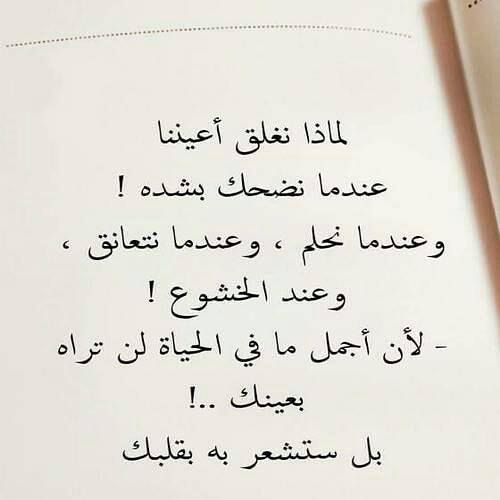 لماذا نغلق أعيننا
عندما نضحك بشده !
وعندما نحلم ، وعندما نتعانق ،
وعند الخشوع !
- لأن أجمل ما في الحياة لن تراه
بعينك ..!
بل ستشعر به بقلبك